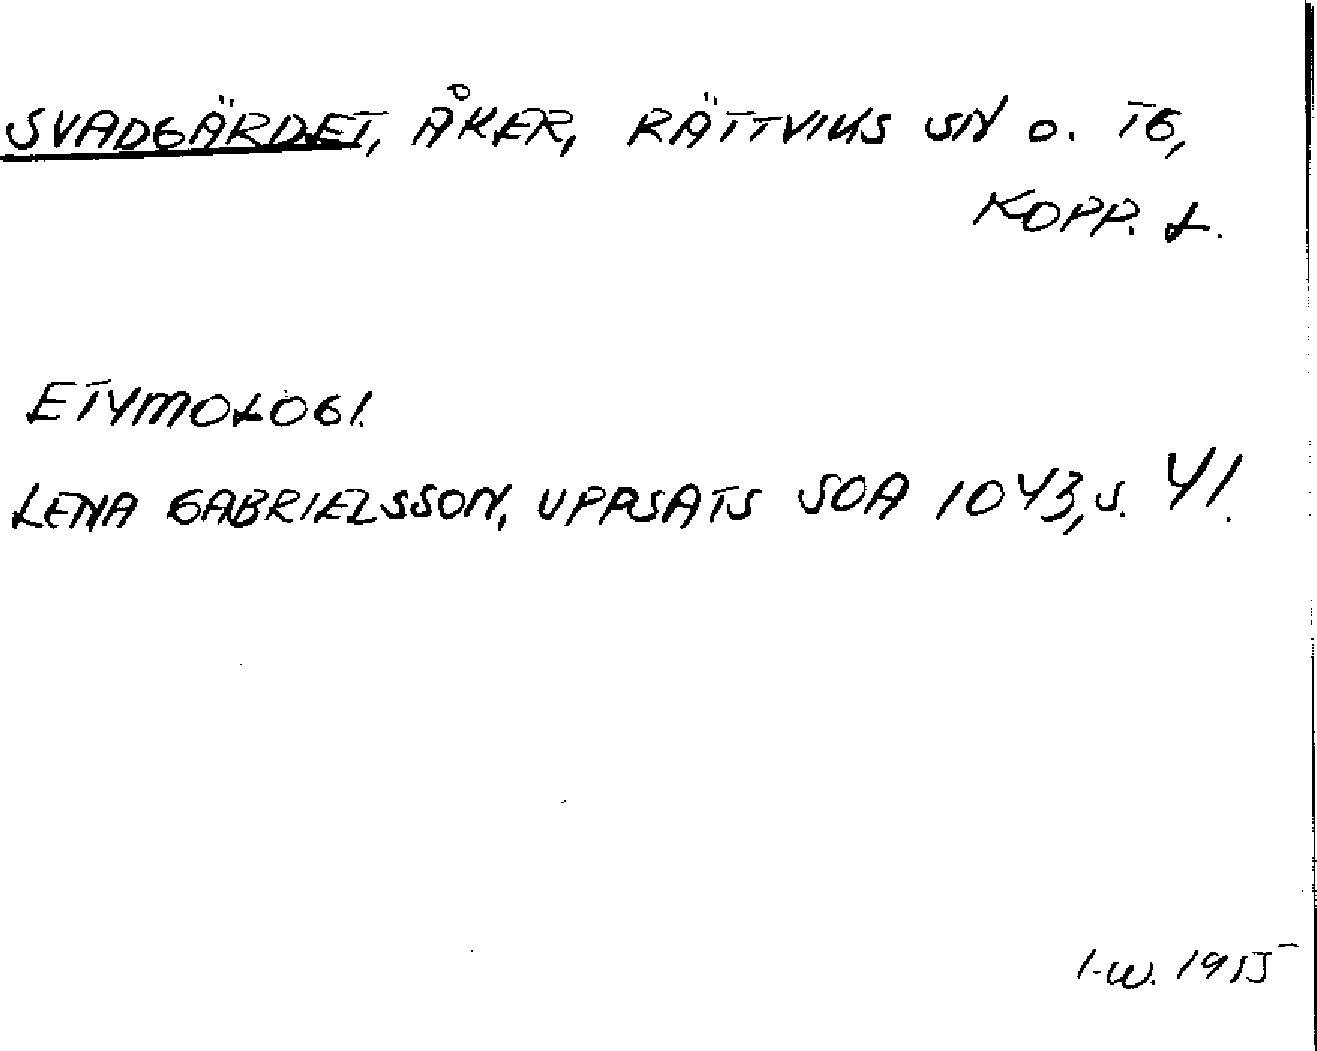 SVADGÄRDET, ÅKER, RÄTTVIKS SN O. TG,
KOPP. L.
ETYMOLOGI.
LENA GABRIELSSON, UPPSATS SOA 1043, S. 41.
I-W. 1955